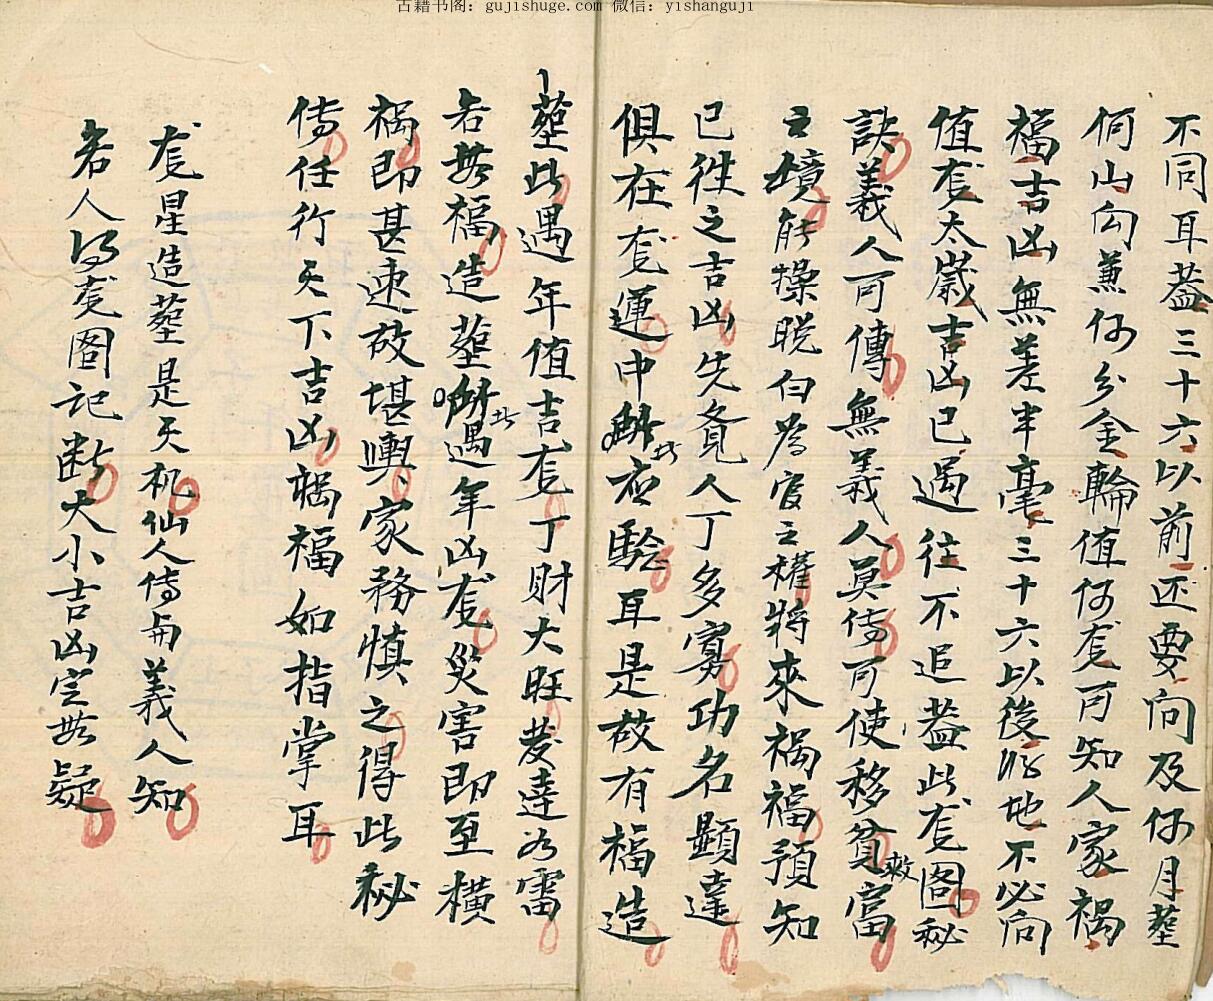 古籍书阁：gujishuge.com 微信：yishanguji
不同耳葢三十六以前还要问及何月塟
何山向兼何分金輪值何宽可知人家禍
福吉凶無差半毫三十六以後版地不必问
值宽太歲吉凶已過往不追葢此宽图秘
訣義人可傳無義人莫傳可使移貧救富
之境能操脱白為官之權將來禍福預知
已徃之吉凶先竟人丁多寡功名顯達
俱在宽運中此应騐耳是故有福造
塟此遇年值吉宽丁財大旺發達如雷
若無福造塟此遇年凶宽災害即至横
禍即甚速故堪輿家務慎之得此秘
傳任行天下吉凶禍福如指掌耳
宽星造塟是天机仙人傳与義人知
若人得宽图记断大小吉凶定無疑